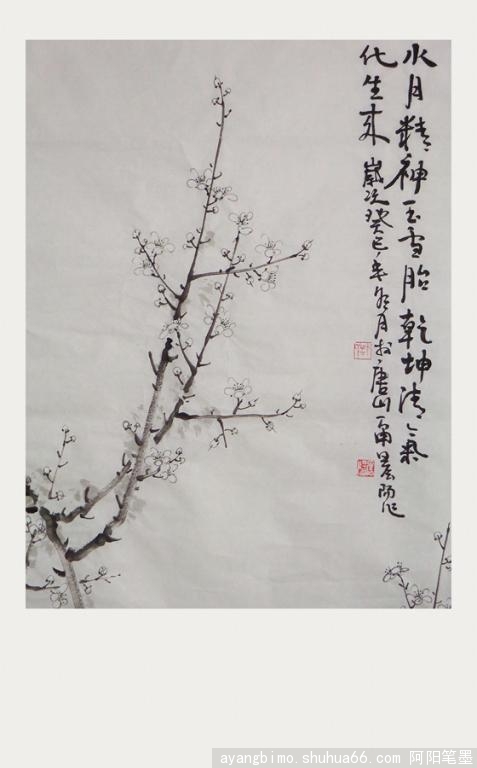 水月精神玉雪胎乾坤清氣
化生來 歲次癸巳年冬月於唐山
ayangbimo.shuhua66.com 阿阳笔墨